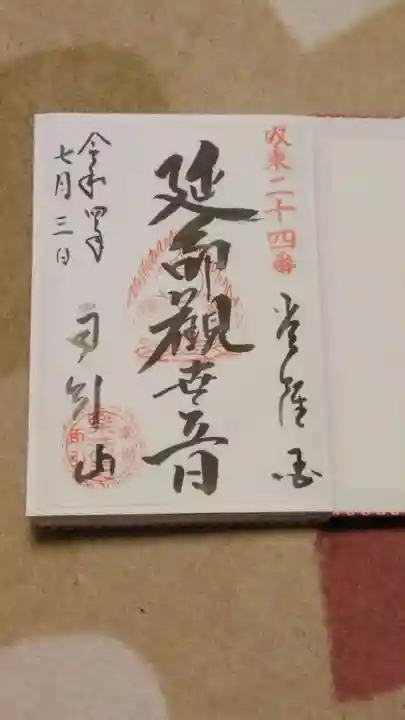 坂東二十四番
常陸国
延命觀世音
令和四年
七月三日
雨引山